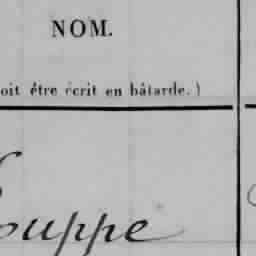 NOM.
oit être écrit en bâtarde.)